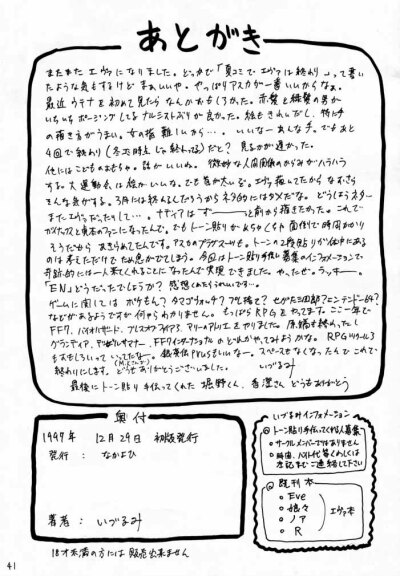 あとがき
またまたエヴァになりました。どっかで「夏コミでエヴァは終わり」って書い
たような気もするけど まあいいや。やっぱりアスカが一番いいからなあ。
最近 ウテナを初めて見たら なんかおもしろかった。赤髪と緑髪の男が
いちいち ポージングしてる ナルシストぶりが良かった。絵もきれいだし、特に手
の描き方がうまい。女の指 難しい から… いいなーあんな手。でもあと
4回で終わり(冬コミ時点じゃ終わってる)だと? 見るのが遅かった。
他には こどものおもちゃ。話がいいね。微妙な人間関係のからみがハラハラ
する。大運動会は絵がいいな。でも首が太いな。エヴァ描いてたからなおさら
そんな気がする。3月には
またエヴァだったりして…。ナディアは ずーーーっと前から描きたかった。これで
ガイナックスと貞本のファンになったんで。でもトーン貼りがめちゃくちゃ面倒で時間かかり
そうだから あきらめてたんです。アスカのプラグスーツも。トーンの2度貼りが体中にある
のは考えただけで ため息がでてしまう。今回はトーン貼り手伝い募集のインフォメーションで
奇跡的に一人来てくれることになったんで 実現できました。やったぜ。ラッキー。
「EN」どうだったでしょうか? 感想くれたらうれしいです…
ゲームに関しては ポケモン? タマゴウォッチ? プリ機を? せがた三四郎? ニンテンドー64?
などがあるようですが 何やらわかりません。もっぱらRPGをやってます。ここ一年で
FF7、バイオハザード、ブレスオブファイア3、アリーのアトリエをやりました。原稿も終わったし
グランディア、デビルサマナー、FFタクティクス のどれがやってみようかな。RPGツクール3
もおもしろいって いってたなー。銀英伝やりたいなー。スペースもなくなったんで これで
終わりにします。どうも ありがとうございました。 いづるみ
最後に トーン貼り 手伝ってくれた 堀野くん、香澄さん どうもありがとう
奥付
1997年 12月29日 初版発行
発行: なかよひ
著者: いづるみ
18才未満の方には 販売出来ません
いづるみインフォメーション
◎トーン貼り手伝ってくれる人募集
○サークルメンバーではありません
○時間、バイト代等くわしくは
左記までご連絡して下さい
◎既刊本
○Eve
○娘々
○ノア
○R
エヴァ本
41